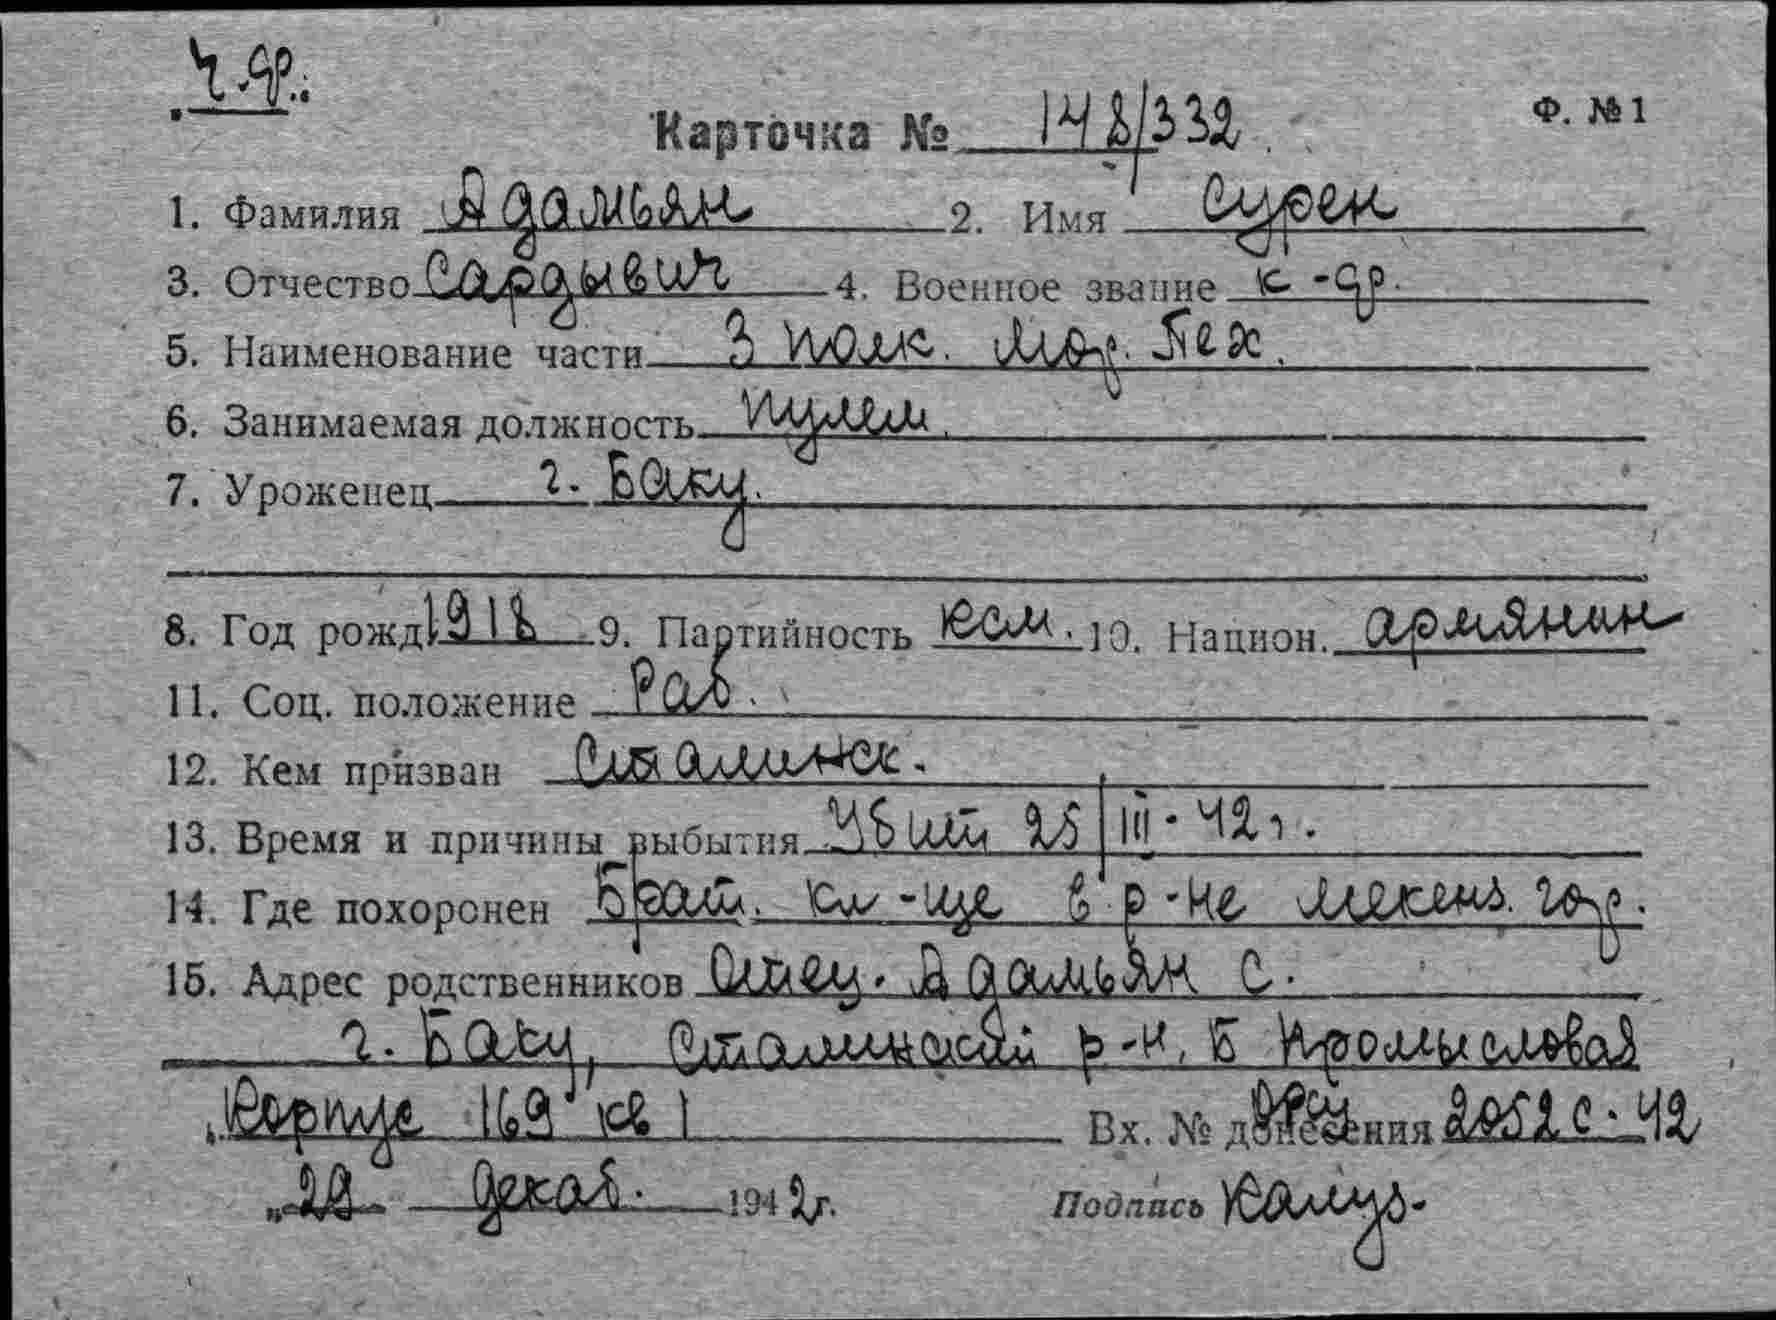 Ч.ф.
Карточка № 148/332
Ф. № 1
1. Фамилия Адамьян 2. Имя Сурен
3. Отчество Сардывич 4. Военное звание к-фр.
5. Наименование части 3 полк. Мор. Пех.
6. Занимаемая должность пулем.
7. Уроженец г. Баку.
8. Год рожд. 1918 9. Партийность ксм. 10. Национ. армянин
11. Соц. положение Раб.
12. Кем призван Сталинск.
13. Время и причины выбытия Убит 25/III-42г.
14. Где похоронен Брат. кл-ще в р-не мекенз. гор.
15. Адрес родственников Отец. Адамьян С.
г. Баку, Сталинский р-н, Б Промысловая
Корпус 169 кв 1 Вх. № донесения 2052с-42
„29" декаб. 1942г. Подпись Калуз-